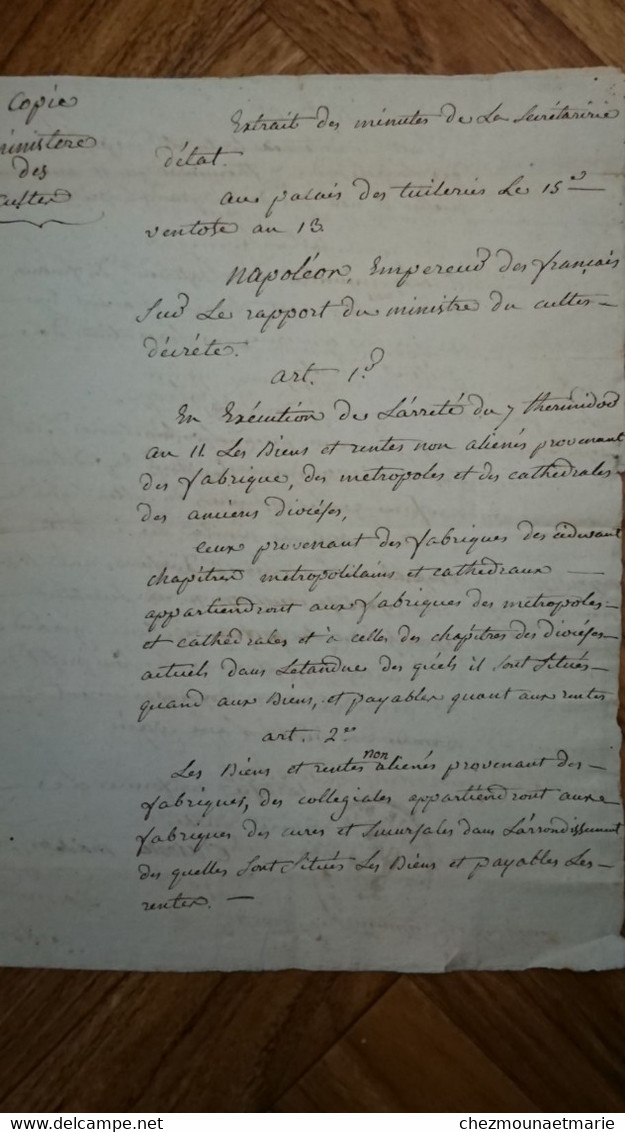 Copie
ministere
des
cultes
Extrait des minutes de La Secrétairie
d'état.
au palais des tuileries Le 15
ventose an 13.
Napoléon, Empereur des français
Sur Le rapport du ministre du cultes
décréte.
art. 1.er
En Exécution de L'arreté du 7 thermidor
an 11. Les Biens et rentes non aliénés provenant
des fabrique, des metropoles et des cathédrales
des anciens diocéses,
ceux provenant des fabriques des cidevant
chapitres metropolitains et cathedraux —
appartiendront aux fabriques des metropoles
et cathédrales et à celles des chapitres des diocéses
actuels dans Letandue des quéls il sont Situés
quand aux Biens, et payables quant aux rentes
art. 2.e
Les Biens et rentes non aliénés provenant des
fabriques, des collegiales appartiendront aux
fabriques des cures et Succursales dans L'arrondissement
des quelles sont Situés Les Biens et payables Les
rentes. —
delcampe.net
chezmounaetmarie